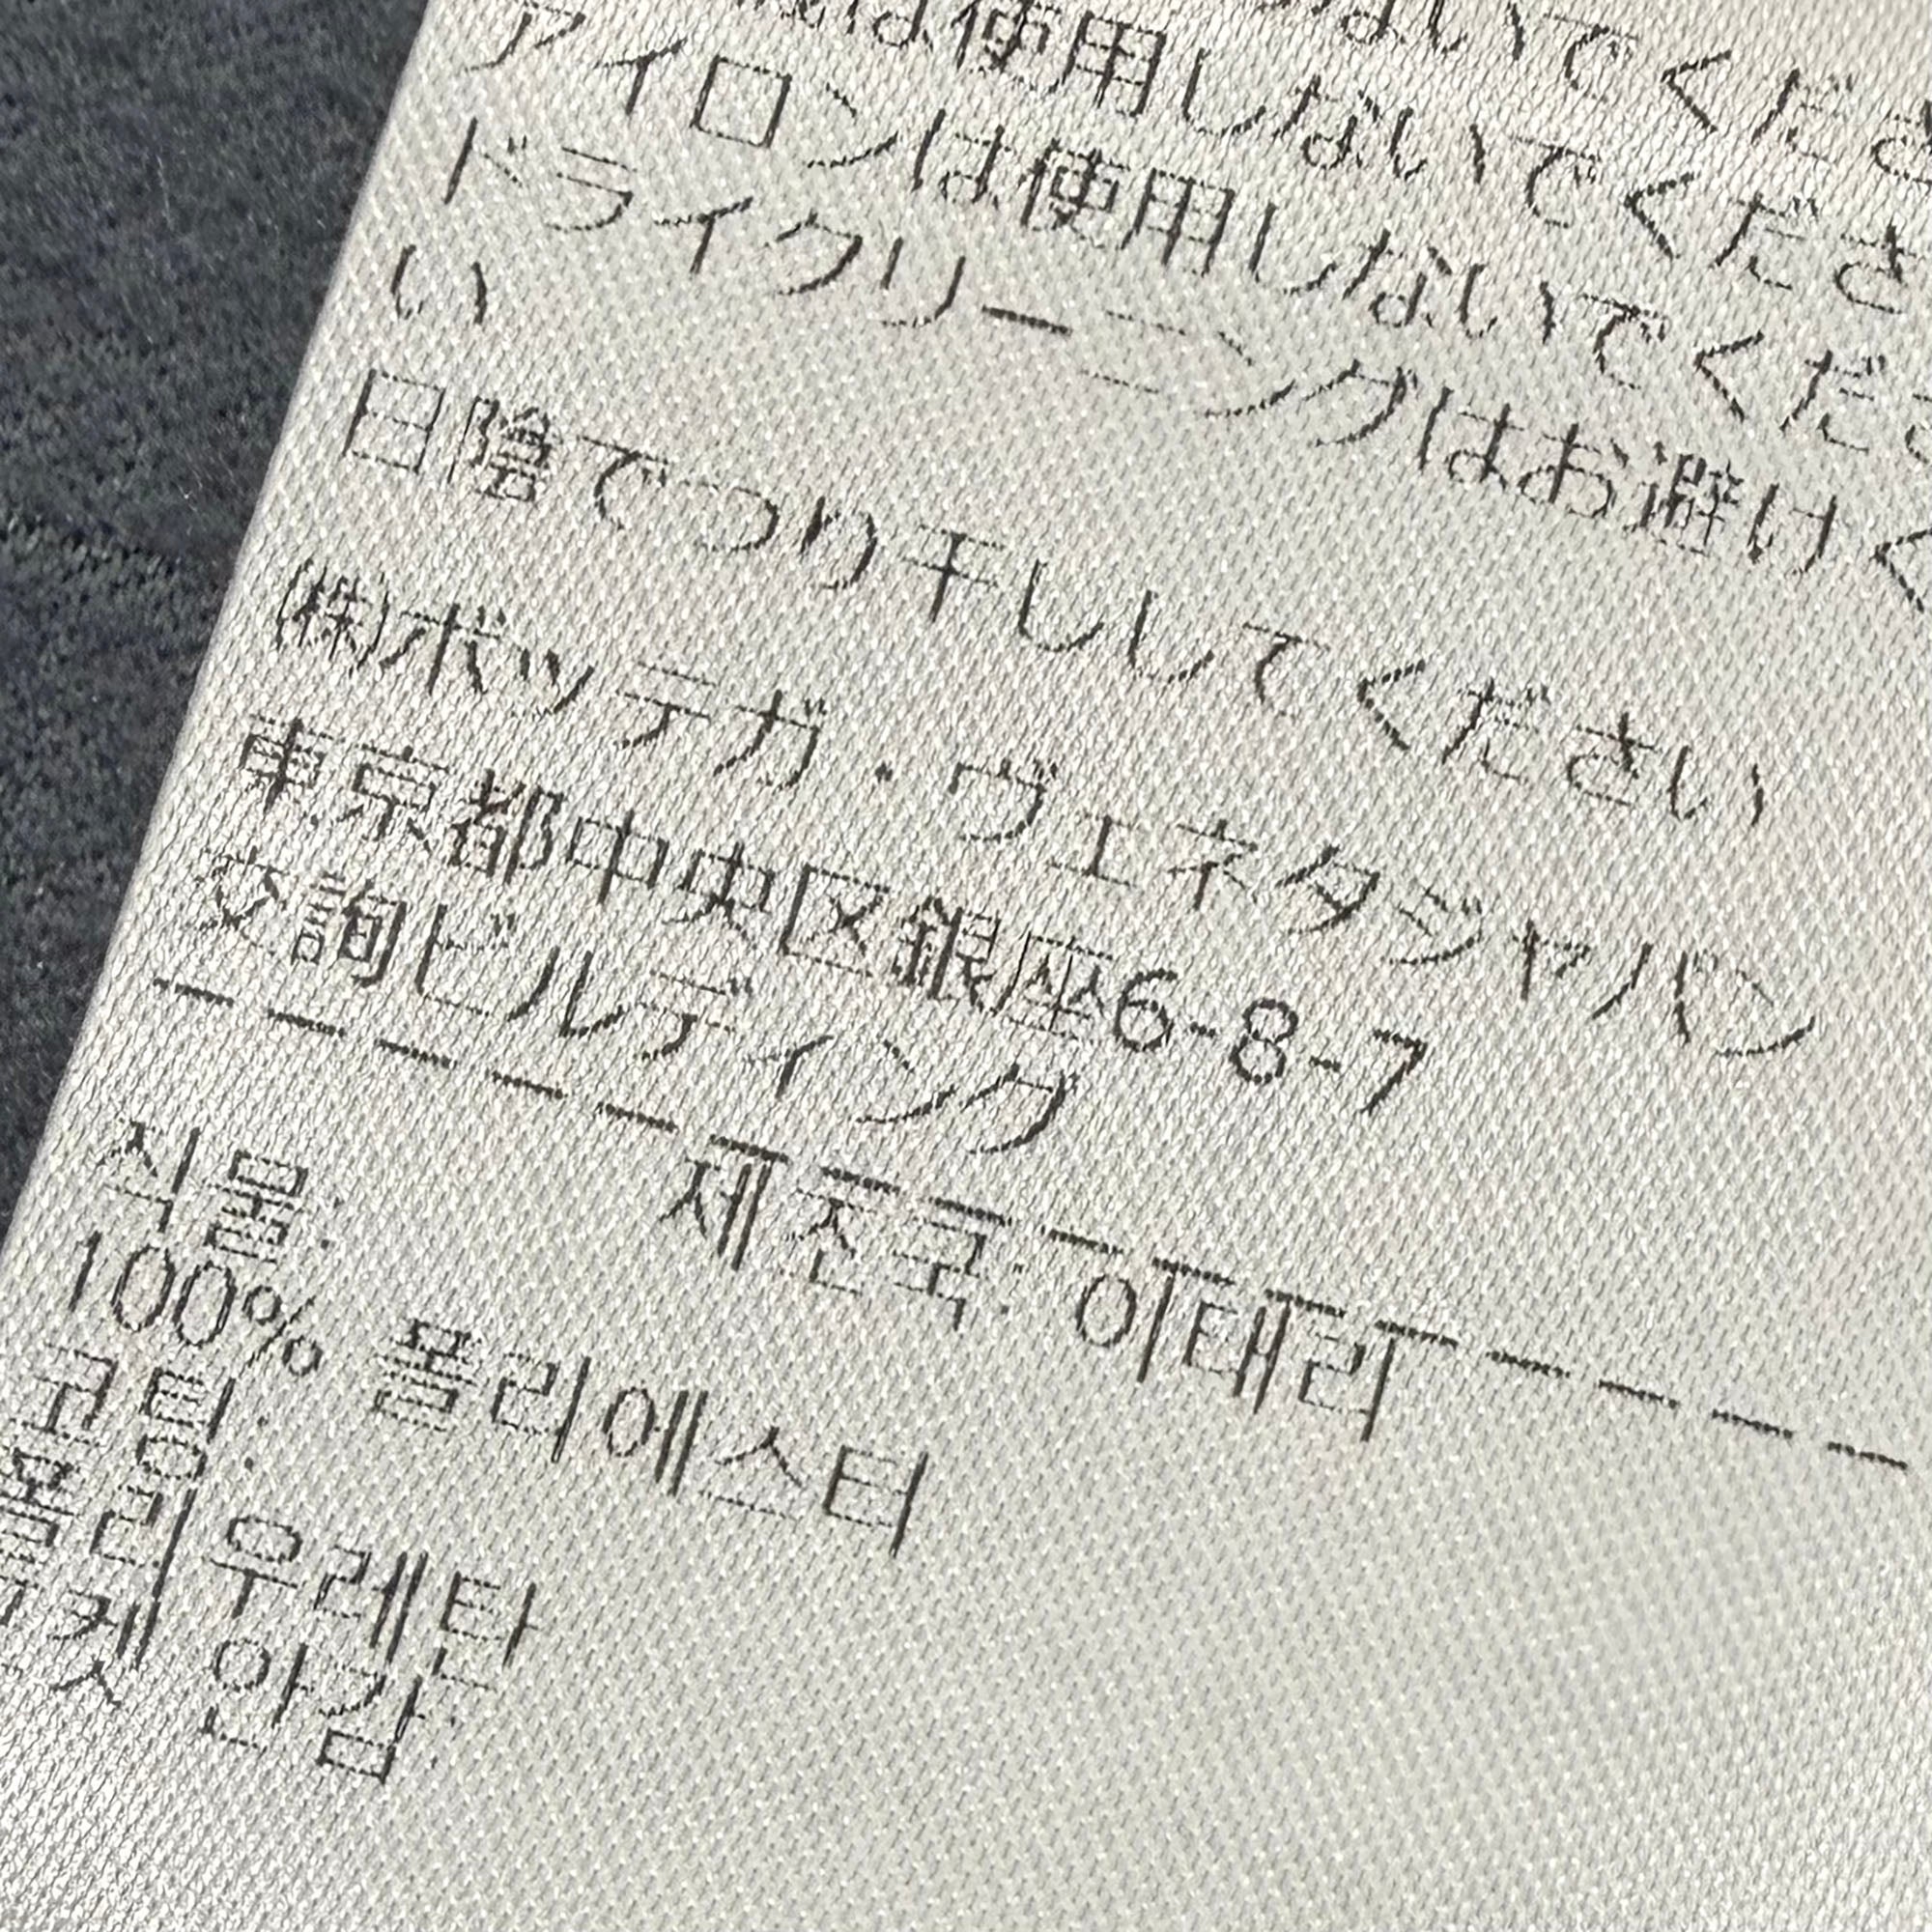 ないでくださ
は使用しないでくださ
アイロンは使用しないでくださ
ドライクリーニングはお避けく
い
日陰でつり干ししてください
(株)ボッテガ・ヴェネタジャパン
東京都中央区銀座6-8-7
交詢ビルディング
제조국: 이태리
직물:
100% 폴리에스터
코팅:
폴리 우레탄
포켓 안감: